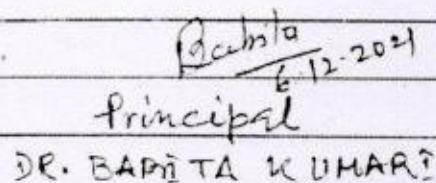 Babita
6.12.2021
Principal
DR. BABITA KUMARI